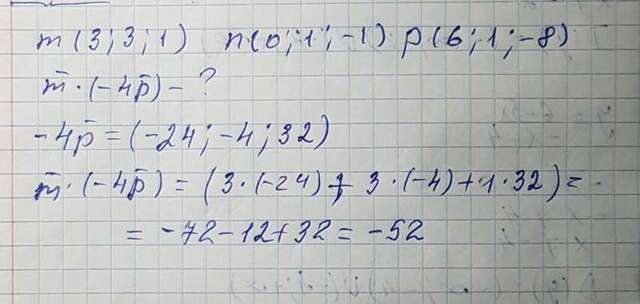 m(3;3;1) n(0;1;-1) p(6;1;-8)
m̄·(-4p̄) - ?
-4p̄ = (-24;-4;32)
m̄·(-4p̄) = (3·(-24) + 3·(-4)+1·32) =
= -72-12+32 = -52